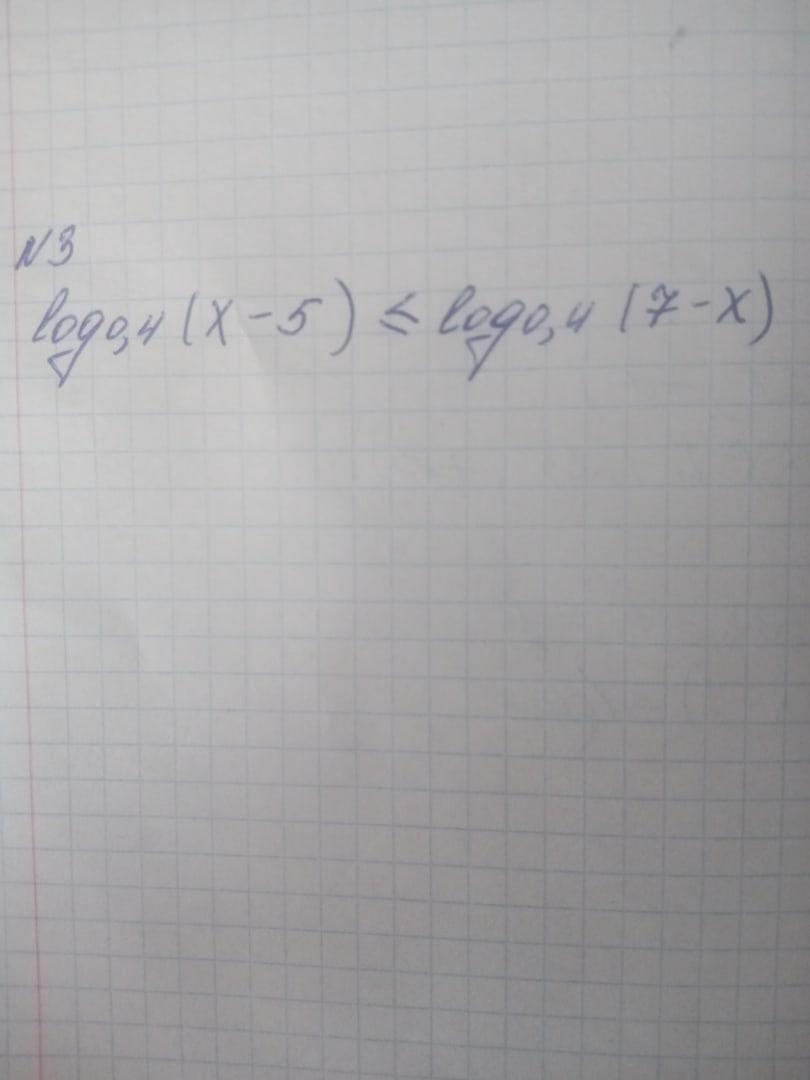 N3
log0,4 (x-5) ≤ log0,4 (7-x)